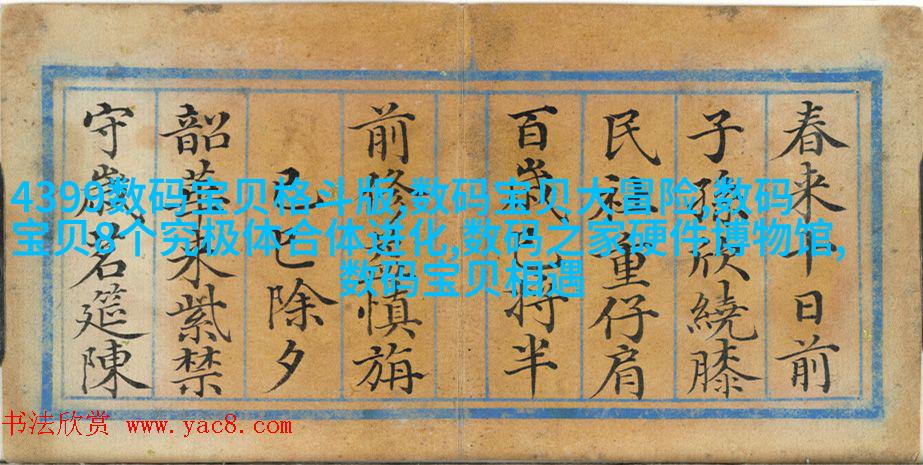 春来十日前
子孫欣繞膝
民重仔肩
百歲将半
前修慎旃
己巳除夕
韶華来紫禁
守歲茗筵陳
4399数码宝贝格斗版,数码宝贝大冒险,数码
宝贝8个究极体合体进化,数码之家硬件博物馆,
数码宝贝相遇
书法欣赏 www.yac8.com